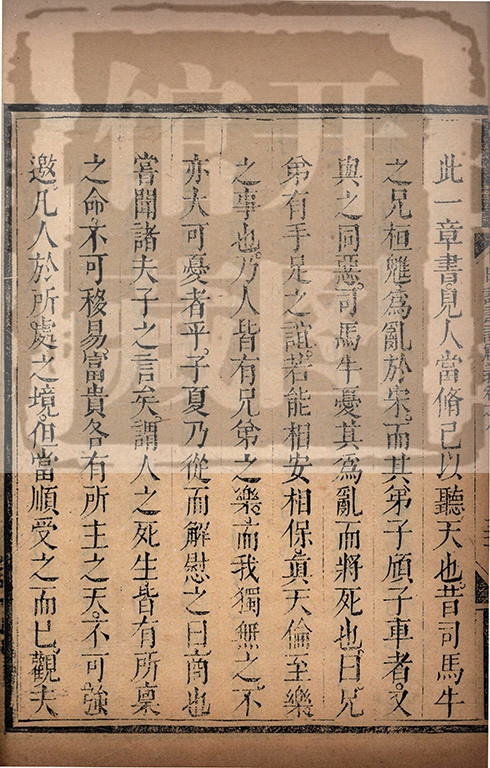 此一章書見人當脩己以聽天也昔司馬牛
之兄桓魋為亂於宋而其弟子頎子車者又
與之同惡司馬牛憂其為亂而將死也曰兄
弟有手足之誼若能相安相保真天倫至樂
之事也乃人皆有兄弟之樂而我獨無之不
亦大可憂者乎子夏乃從而解慰之曰商也
嘗聞諸夫子之言矣謂人之死生皆有所稟
之命不可移易富貴各有所主之天不可強
邀凡人於所處之境但當順受之而已觀夫